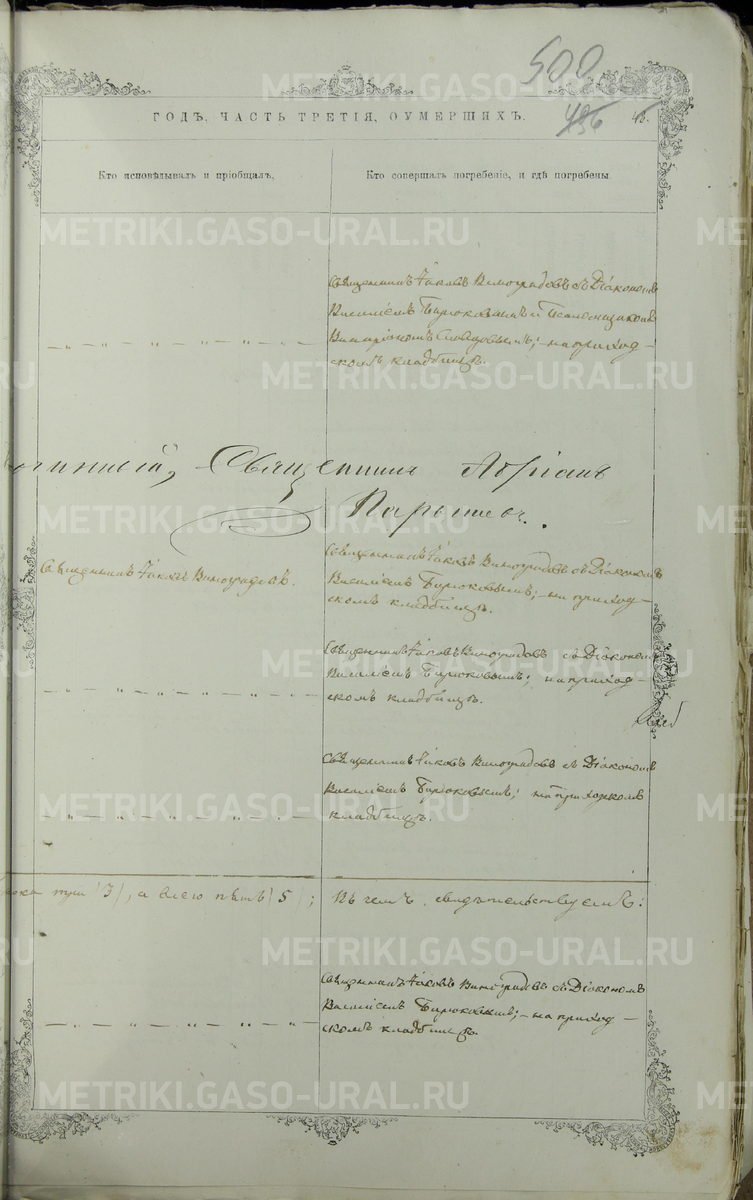 500
456 45.
ГОДЪ, ЧАСТЬ ТРЕТІЯ, О УМЕРШИХЪ.
Кто исповѣдывалъ и пріобщалъ.
Кто совершалъ погребеніе, и гдѣ погребены.
Священникъ Іаковъ Виноградовъ съ Діакономъ
Василіемъ Бирюковымъ и Псаломщикомъ
Словцовымъ; – на приход-
скомъ кладбищѣ.
– „ – „ – „ – „ –
Священникъ Адріанъ
Парышевъ.
Священникъ Іаковъ Виноградовъ.
Священникъ Іаковъ Виноградовъ съ Діакономъ
Василіемъ Бирюковымъ; – на приход-
скомъ кладбищѣ.
– „ – „ – „ – „ –
Священникъ Іаковъ Виноградовъ съ Діакономъ
Василіемъ Бирюковымъ; на приход-
скомъ кладбищѣ.
– „ – „ – „ – „ –
Священникъ Іаковъ Виноградовъ съ Діакономъ
Василіемъ Бирюковымъ; на приходском
кладбищѣ.
пола три (3), а всего пять (5); Въ чемъ свидѣтельствуемъ:
– „ – „ – „ – „ –
Священникъ Іаковъ Виноградовъ съ Діакономъ
Василіемъ Бирюковымъ; – на приход-
скомъ кладбищѣ.
METRIKI.GASO-URAL.RU